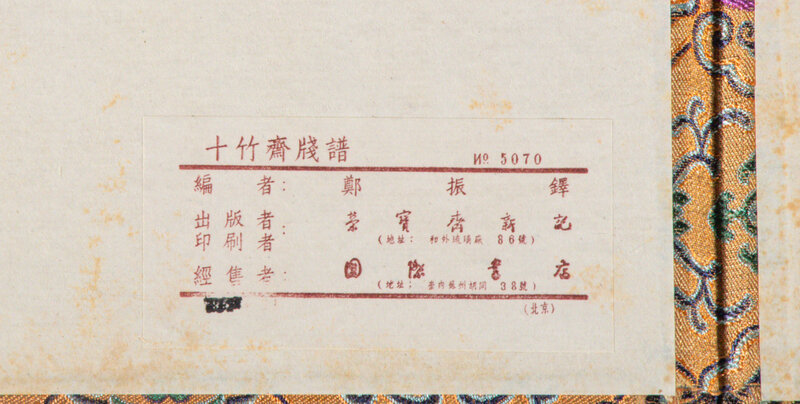 十竹齋牋譜 № 5070
編者: 鄭振鐸
出版者
印刷者: 榮寶齋新記
(地址: 和外琉璃廠 86號)
經售者: 國際書店
(地址: 崇內蘇州胡同 38號)
(北京)